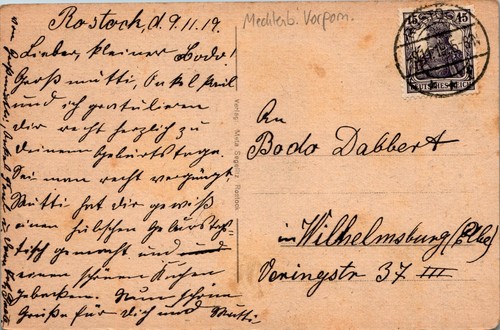 Rostock, d. 9.11.19.
Lieber, kleiner Bodo!
Großmütti, Onkel Karl
und ich gratulieren
dir recht herzlich zu
deinem Geburtstage.
Sei man recht vergnügt.
Mutti hat dir gewiß
einen hübschen Geburtstags
tisch gemacht und
einen schönen Kuchen
gebacken. Nun schöne
Grüße für dich und Mutti
von Großmutti, Onkel
Mecklenb. Vorpom.
15 15
DEUTSCHES REICH
Verlag Rostock
An
Bodo Dabbert
in Wilhelmsburg (Elbe)
Veringstr 37 III